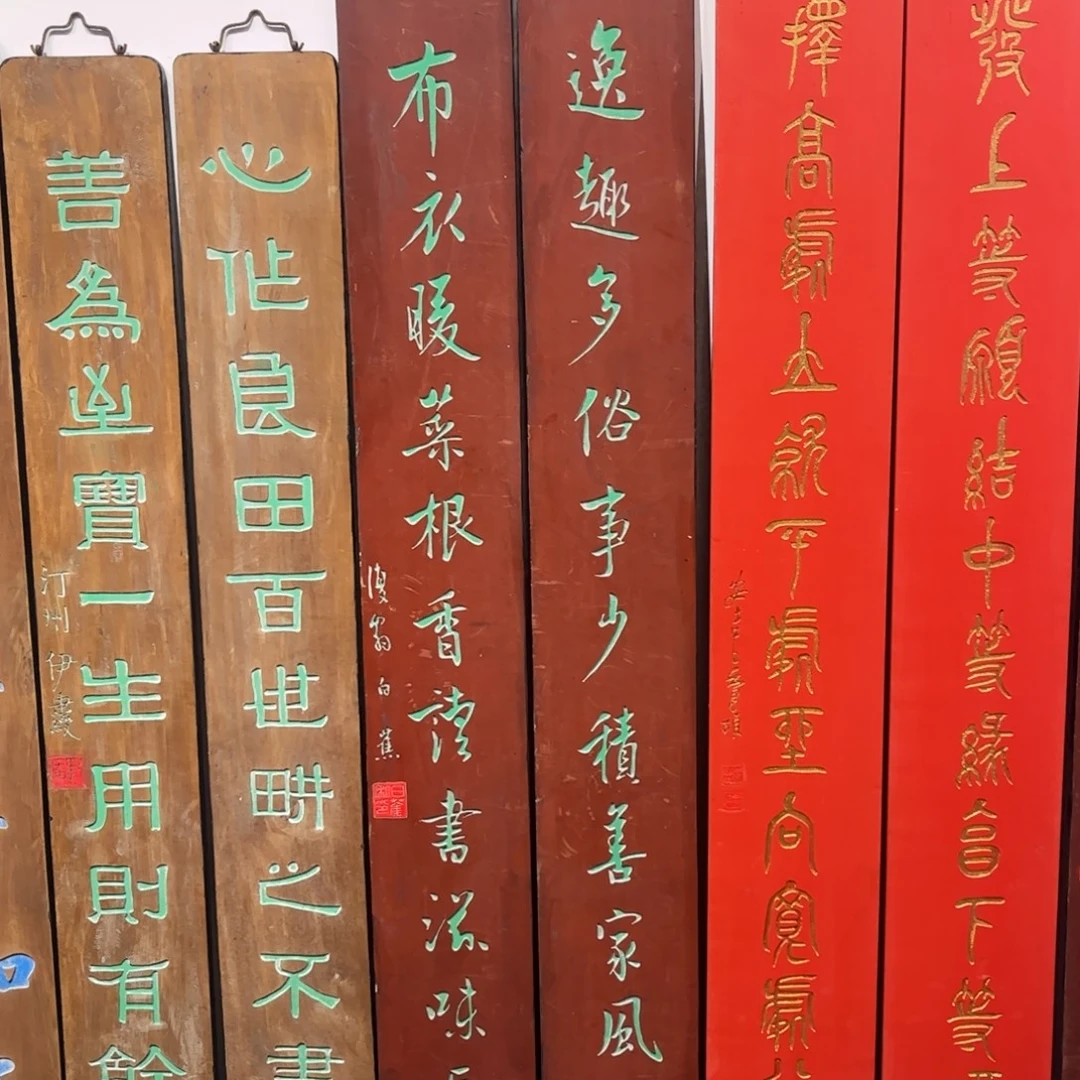 發上等願結中等緣享下等
擇高處立就平處坐向寬處
逸趣多俗事少積善家風
布衣暖菜根香讀書滋味
復翁白蕉
心作良田百世畊之不盡
善為至寶一生用則有餘
汀州伊秉綬